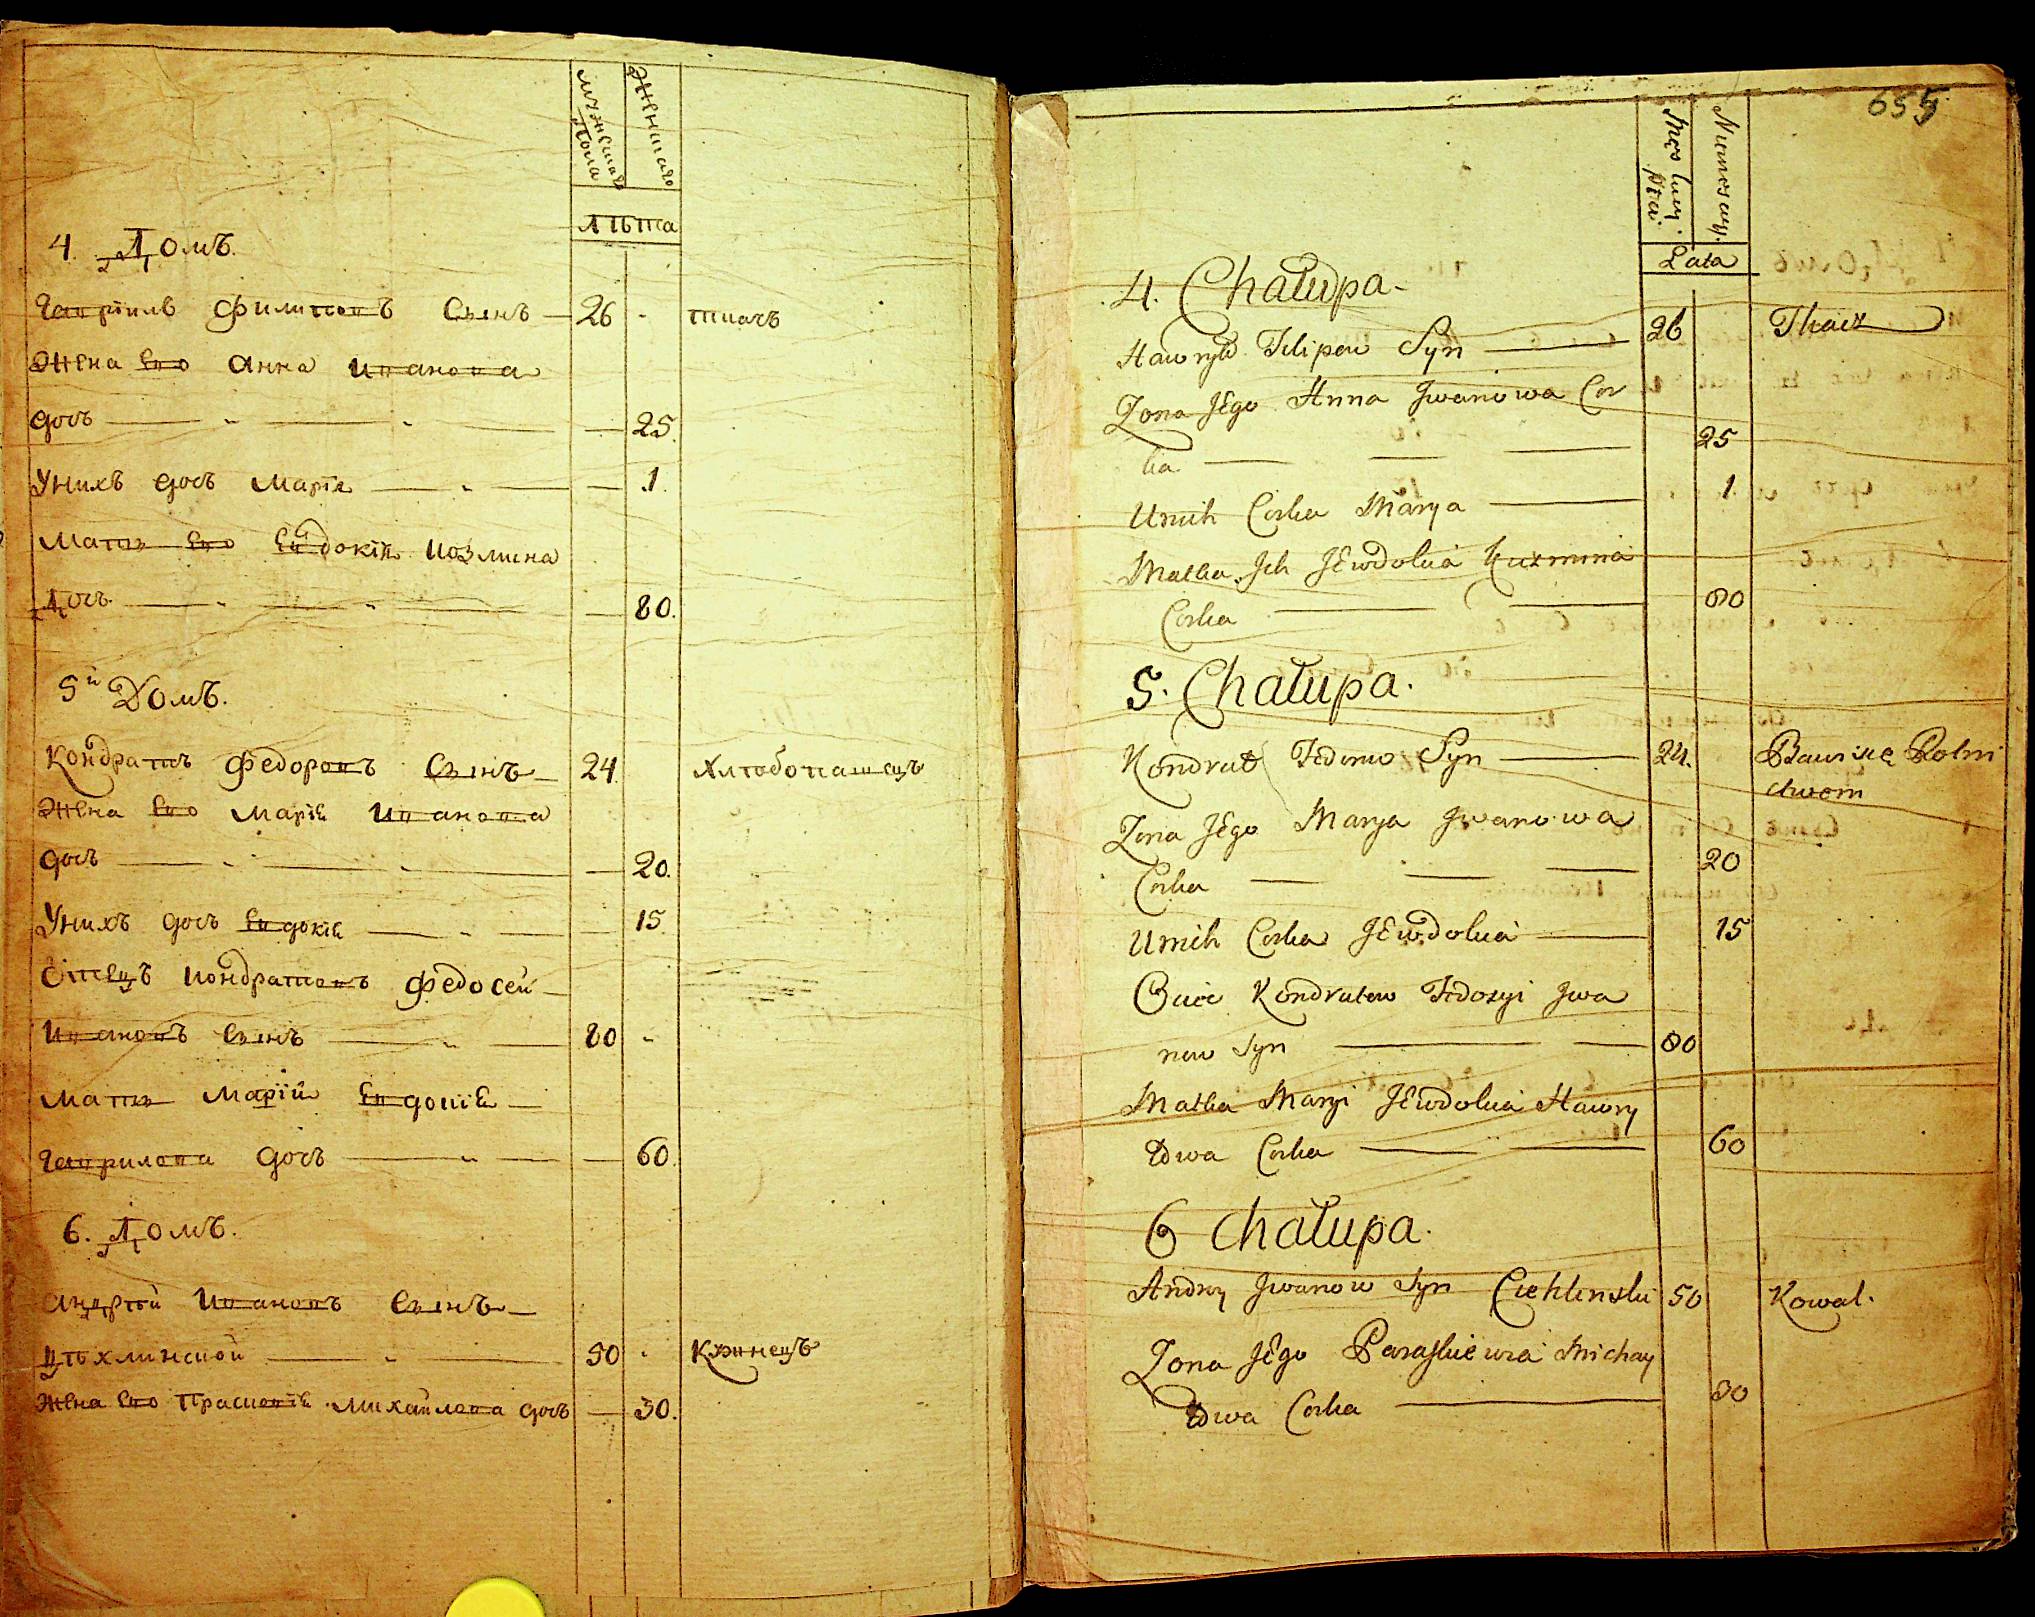 мужеска пола
женска
лѣта
4. Домъ.
Гавріилъ Филиповъ Сынъ — 26 - ткачъ
Жена Его Анна Иванова
дочь — 25.
Унихъ дочь Марія — 1.
Мать Его Евдокія Козмина
Дочь — 80.
5й Домъ.
Кондратъ Федоровъ Сынъ — 24 Хлѣбопашецъ
Жена Его Марія Иванова
дочь — 20.
Унихъ дочь Евдокія — 15
Отецъ Кондратовъ Федосей
Ивановъ Сынъ — 80 -
Мать Маріи Евдокія
Гаврилова дочь — 60.
6. Домъ.
Андрѣй Ивановъ Сынъ
Цѣхлинской — 50 - Кузнецъ
Жена Его Прасковія Михайлова дочь — 30.
655
Lata
4. Chałupa.
Hawryło Filipow Syn — 26 Tkacz
Zona Jego Anna Jwanowa Cor
ka — 25
Unich Corka Marya — 1
Matka Jch Jewdokia Kuzmina
Corka — 80
5. Chałupa.
Kondrat Fedorow Syn — 24. Bawi się Rolni
ctwem
Zona Jego Marya Jwanowa
Corka — 20
Unich Corka Jewdokia — 15
Ociec Kondratow Fedosyi Jwa
now Syn — 80
Matka Maryi Jewdokia Hawry
łowa Corka — 60
6 Chałupa.
Andrzy Jwanow Syn Ciehlinski 50 Kowal.
Zona Jego Paraskiewia Michay
łowa Corka — 30